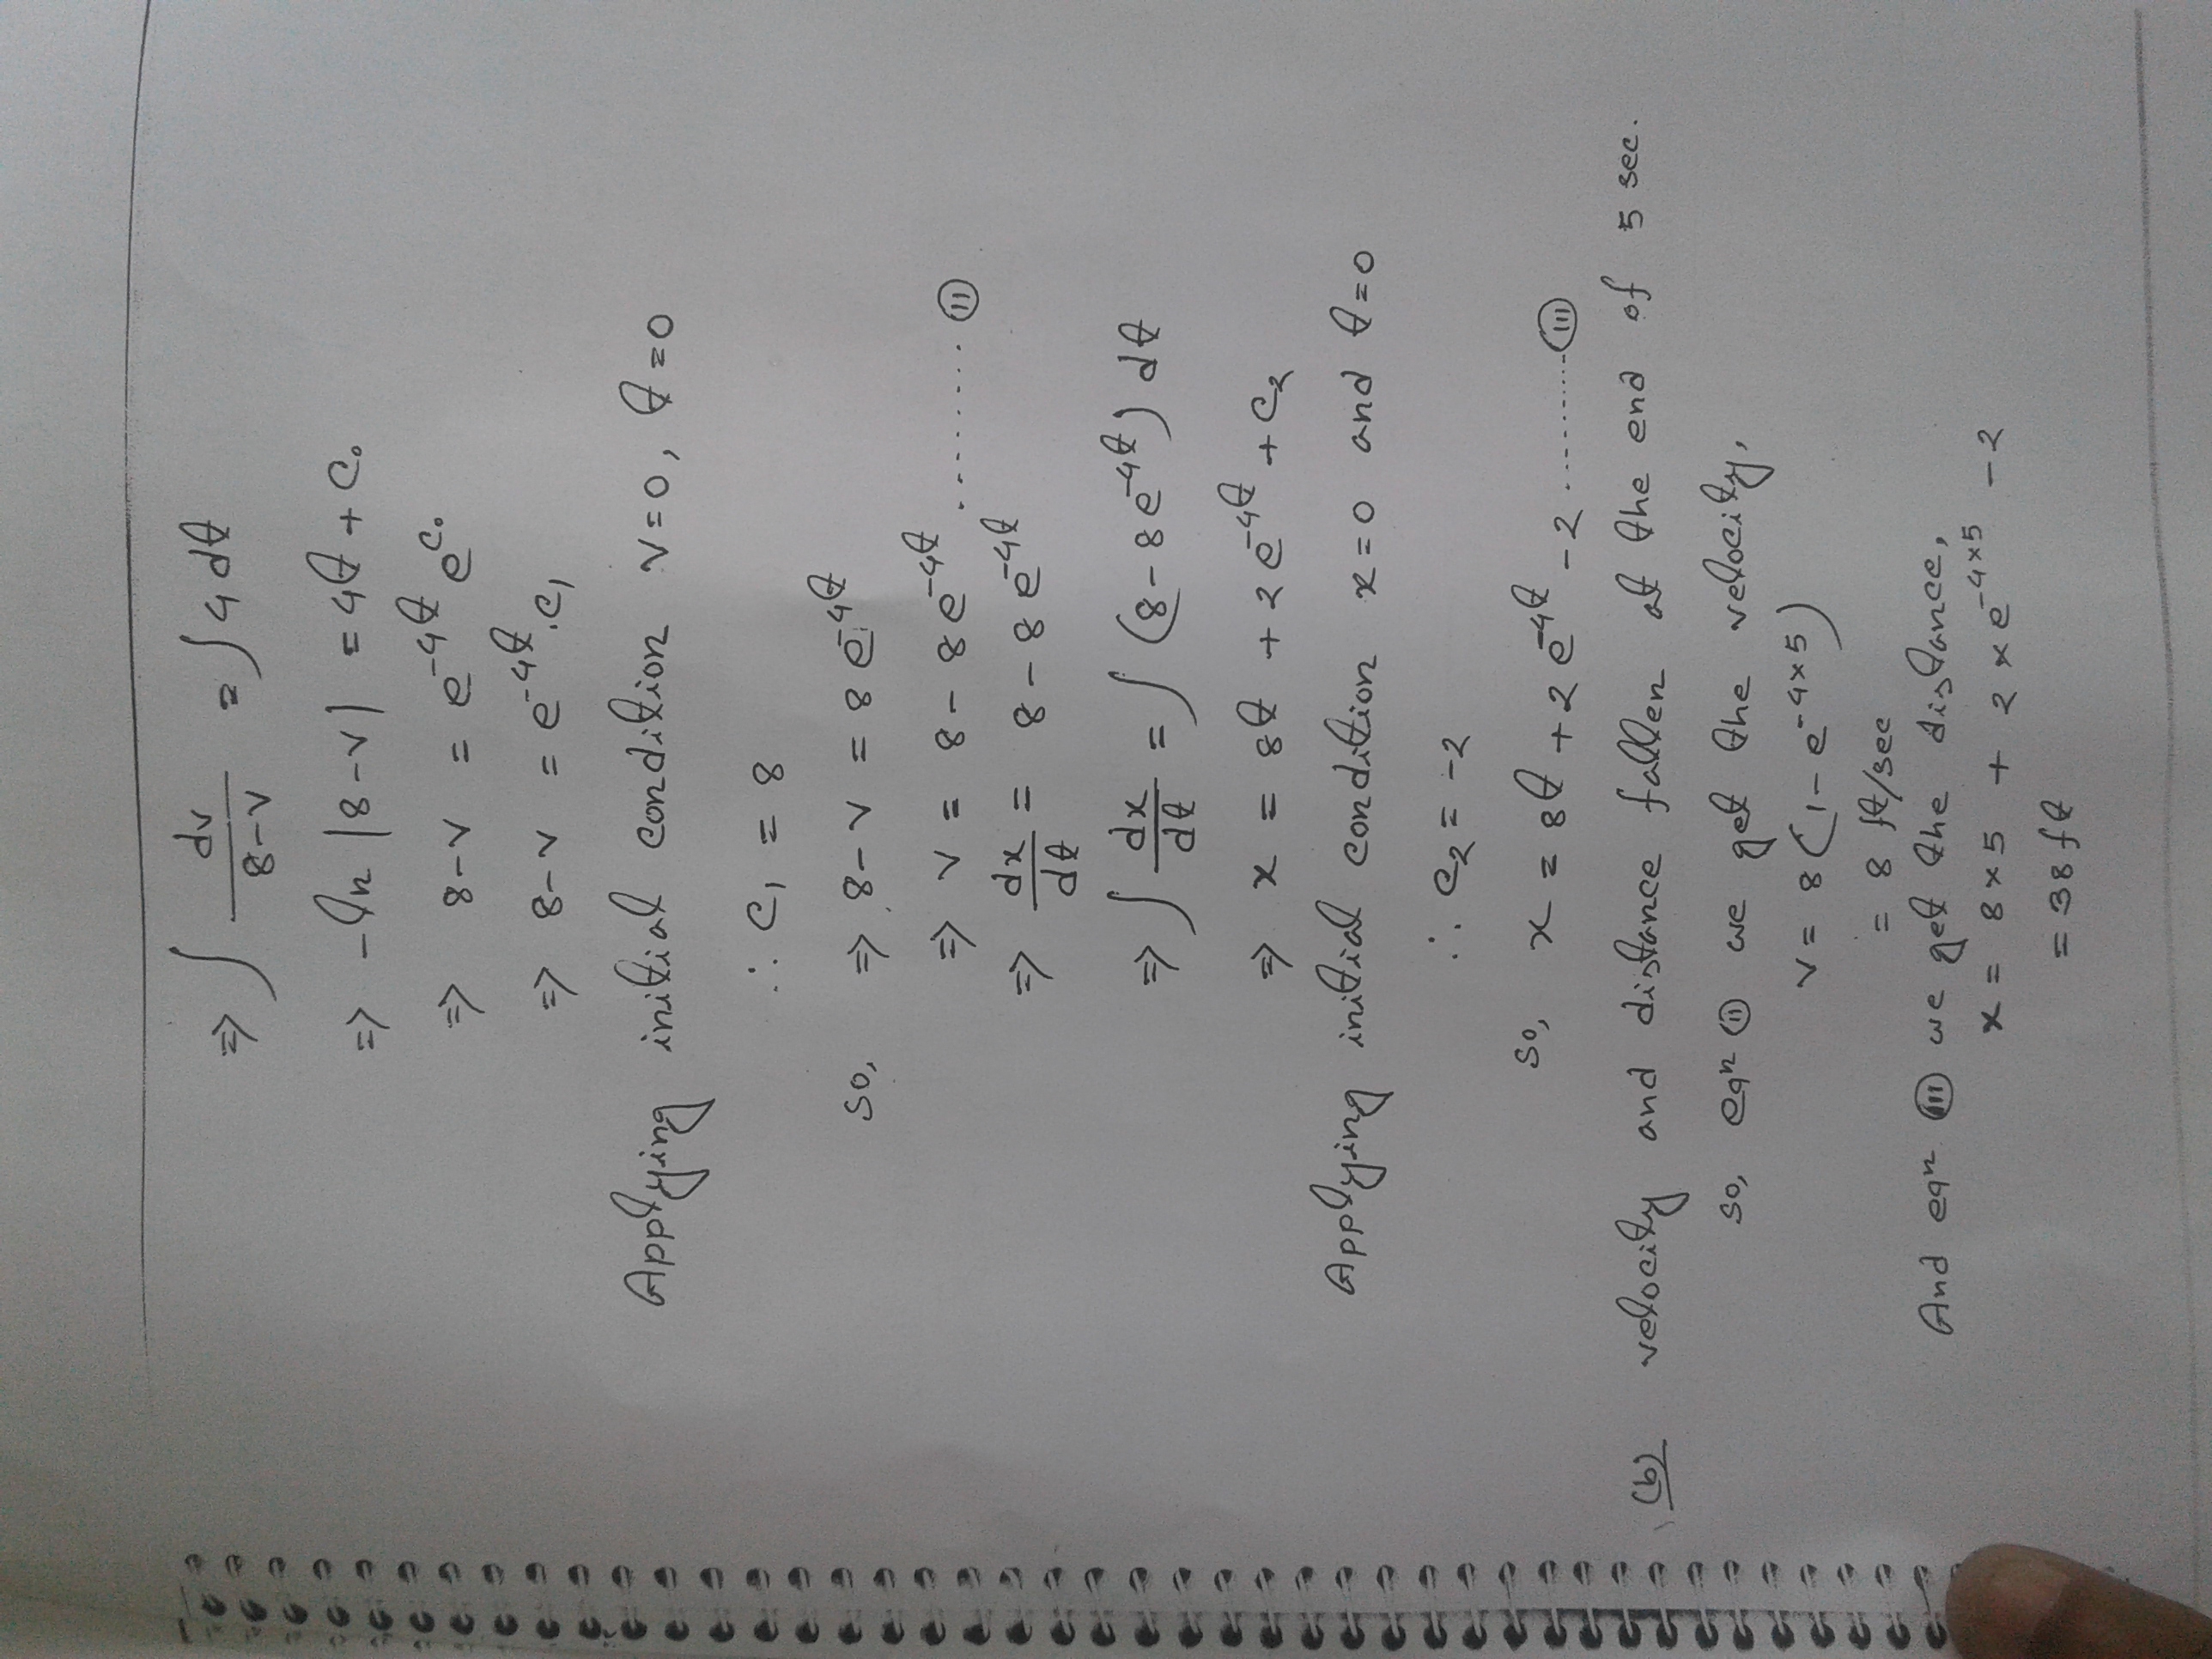 ⇒ ∫ dv/(8-v) = ∫ 4 dt
⇒ -ln |8-v| = 4t + c₀
⇒ 8-v = e^{-4t} e^{c₀}
⇒ 8-v = e^{-4t}.c₁
Applying initial condition v=0, t=0
∴ c₁ = 8
so, ⇒ 8-v = 8 e^{-4t}
⇒ v = 8 - 8e^{-4t} ......... (ii)
⇒ dx/dt = 8 - 8e^{-4t}
⇒ ∫ dx/dt = ∫ (8-8e^{-4t}) dt
⇒ x = 8t + 2e^{-4t} + c₂
Applying initial condition x=0 and t=0
∴ c₂ = -2
so, x = 8t + 2e^{-4t} - 2 .......... (iii)
(b) velocity and distance fallen at the end of 5 sec.
so, eqⁿ (ii) we get the velocity,
v = 8(1-e^{-4×5})
= 8 ft/sec
And eqⁿ (iii) we get the distance,
x = 8×5 + 2×e^{-4×5} - 2
= 38 ft